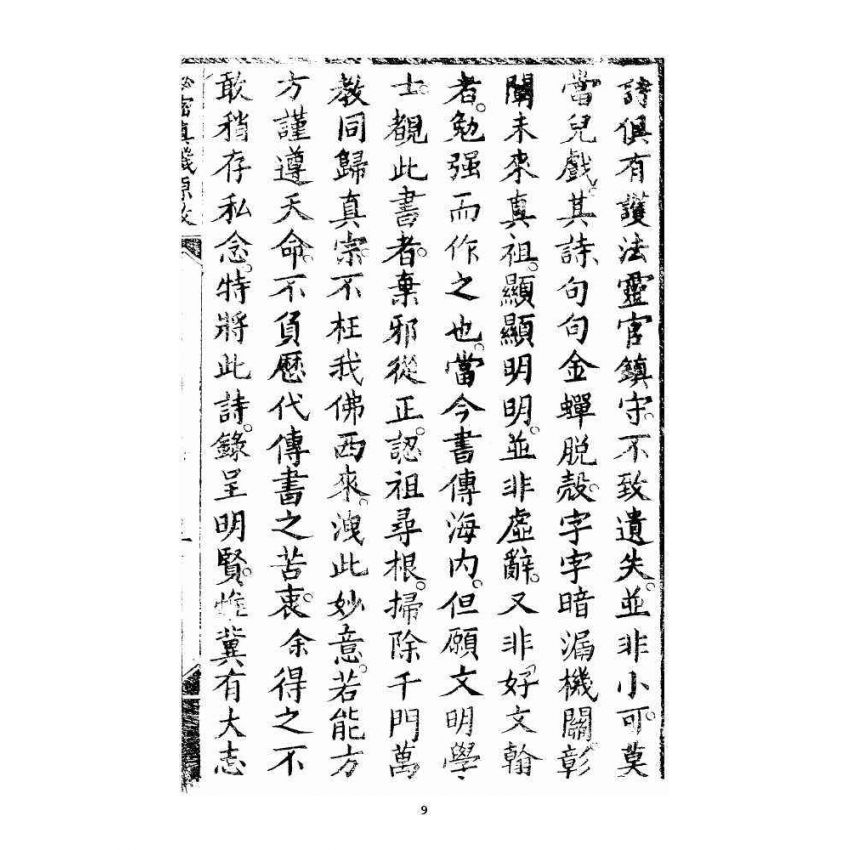 詩俱有護法靈官鎮守。不致遺失。並非小可。莫
當兒戲。其詩句句金蟬脫殼。字字暗漏機關。彰
闡未來真祖。顯顯明明。並非虛辭。又非好文翰
者。勉强而作之也。當今書傳海內。但願文明學
士。覩此書者。棄邪從正。認祖尋根。掃除千門萬
教。同歸真宗。不枉我佛西來。洩此妙意。若能方
方謹遵天命。不負歷代傳書之苦衷。余得之不
敢稍存私念。特將此詩。錄呈明賢。惟冀有大志
9